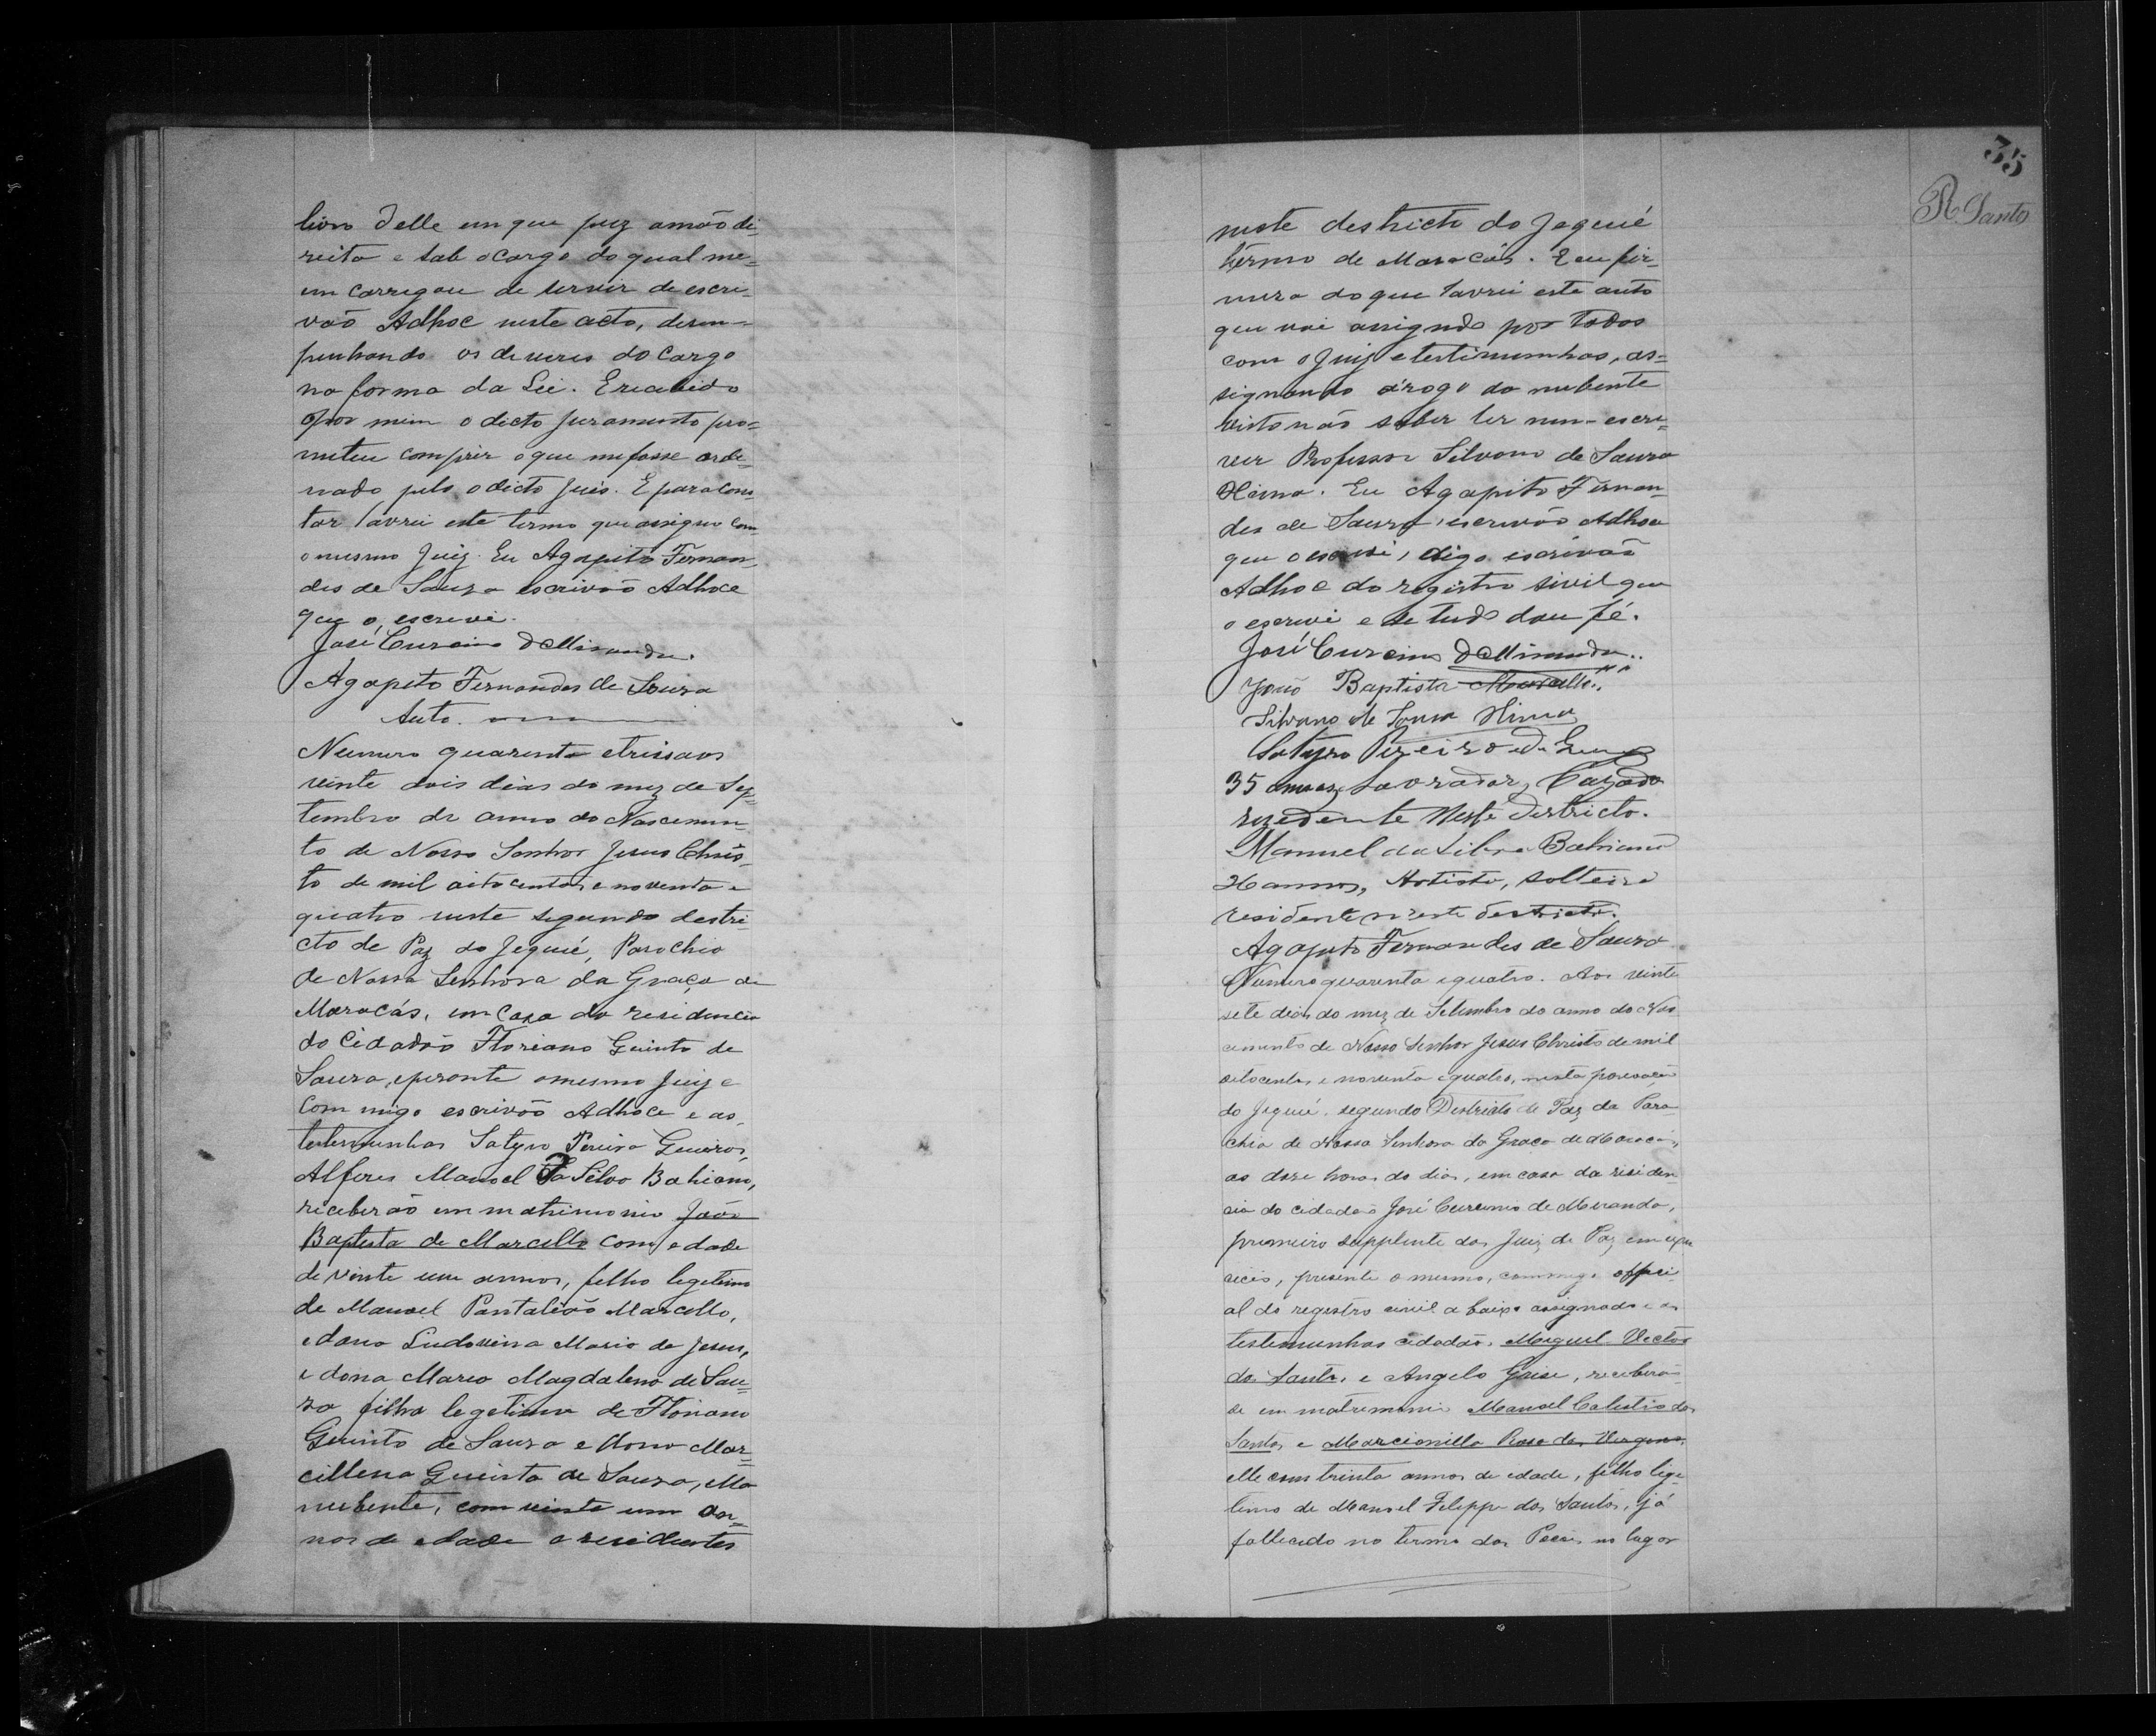 livro delle em que puz amão di-
reita e sob o cargo do qual me-
em carregou de servir de escri-
vão Adhoc neste acto, desem-
penhando os deveres do cargo
na forma da Lei. E recebido
por mim o dicto juramento pro-
meteu comprir o que me fosse orde-
nado pelo o dicto Juis. E para cons-
tar lavrei este termo que assigno com
o mesmo Juiz. Eu Agapito Fernan-
des de Souza escrivão Adhoce
que o, escrevi.
José Curcino d Miranda.
Agapito Fernandes de Souza
Auto.
Numero quarenta etrissaos
vinte dois dias do mez de Sep-
tembro do anno do Nascimen-
to de Nosso Senhor Jesus Chris-
to de mil oitocentos e noventa e
quatro neste segundo destri-
cto de Paz do Jequié, Parochia
de Nossa Senhora da Graça de
Maracás, em Casa da residencia
do Cidadão Floriano Guinto de
Souza, eperante omesmo Juiz e
Com migo escrivão Adhoce e as
testemunhas Satyro Pereira
Alferes Manoel da Silva Bahiano,
receberão em matrimonio João
Baptista de Marcello com edade
de vinte um annos, filho legetimo
de Manoel Pantalião Marcello,
edona Maria de Jesus,
e dona Maria Magdalena de Sou-
za filha legetima de Floriano
Guinto de Souza e dona Mar-
cillena Guinta de Souza, Ma
nubente, com vinte um an-
nos de edade e residentes
35
R. Santos
neste destricto do Jequié
termo de Maracás. E eu fir-
meza do que lavrei este auto
que vai assignado por todos
com o Juiz etestimunhas, as-
signando arogo da nubente
visto não saber ler nem- escre-
ver Professor Silvano de Souza
Hima. Eu Agapito Fernan-
des de Souza, escrivão Adhoce
que o escrevi, digo escrivão
Adhoc do registro sivil que
o escrevi e de tudo dou fé.
José Curcino d Miranda..
João Baptista Marcello..
Silvano de Souza Hima
Satyro Pereira de
35 annos, Lavrador, Cazado
rezedente Neste Districto.
Manuel da Silva Bahiano
26 annos, Artista, solteiro
residente neste destricto.
Agapito Fernandes de Souza
Numero quarenta equatro. Aos vinte
sete dias do mez de Setembro do anno do Nas-
cimento de Nosso Senhor Jesus Christo de mil
oitocentos e noventa equatro, nesta povoação
do Jequié, segundo Destricto de Paz da Paro-
chia de Nossa Senhora da Graça de Maracás,
as doze horas do dia, em casa da residen-
cia do cidadão José Curcino de Miranda,
primeiro supplente do Juiz de Paz em exer-
cicio, presente o mesmo, commigo offici-
al do registro civil a baixo assignado e as
testemunhas cidadão, Miguel Victor
dos Santos e Angelo Grise, receberão-
se em matremonio Manoel Calestio dos
Santos e Marcionilla Rosa das Virgens,
elle com trinta annos de edade, filho lige-
timo de Manoel Felippe dos Santos, já
fallecido no termo dos Poções, no lugar